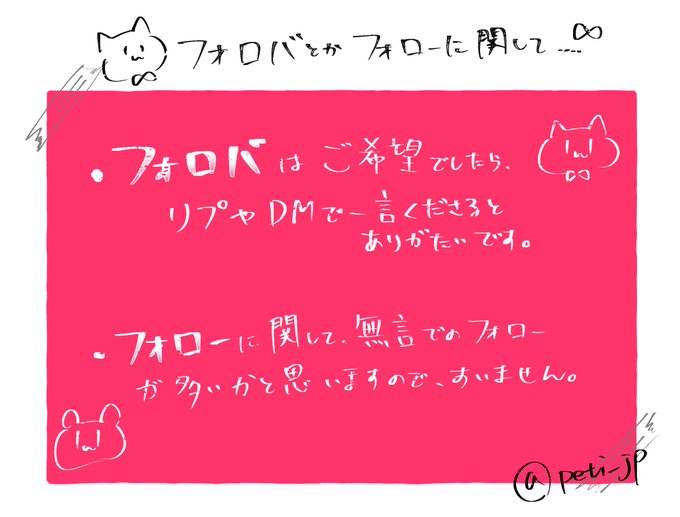 フォロバとかフォローに関して....
・フォロバはご希望でしたら、
リプやDMで一言くださると
ありがたいです。
・フォローに関して、無言でのフォロー
が多いかと思いますので、すいません。
@peti_jp